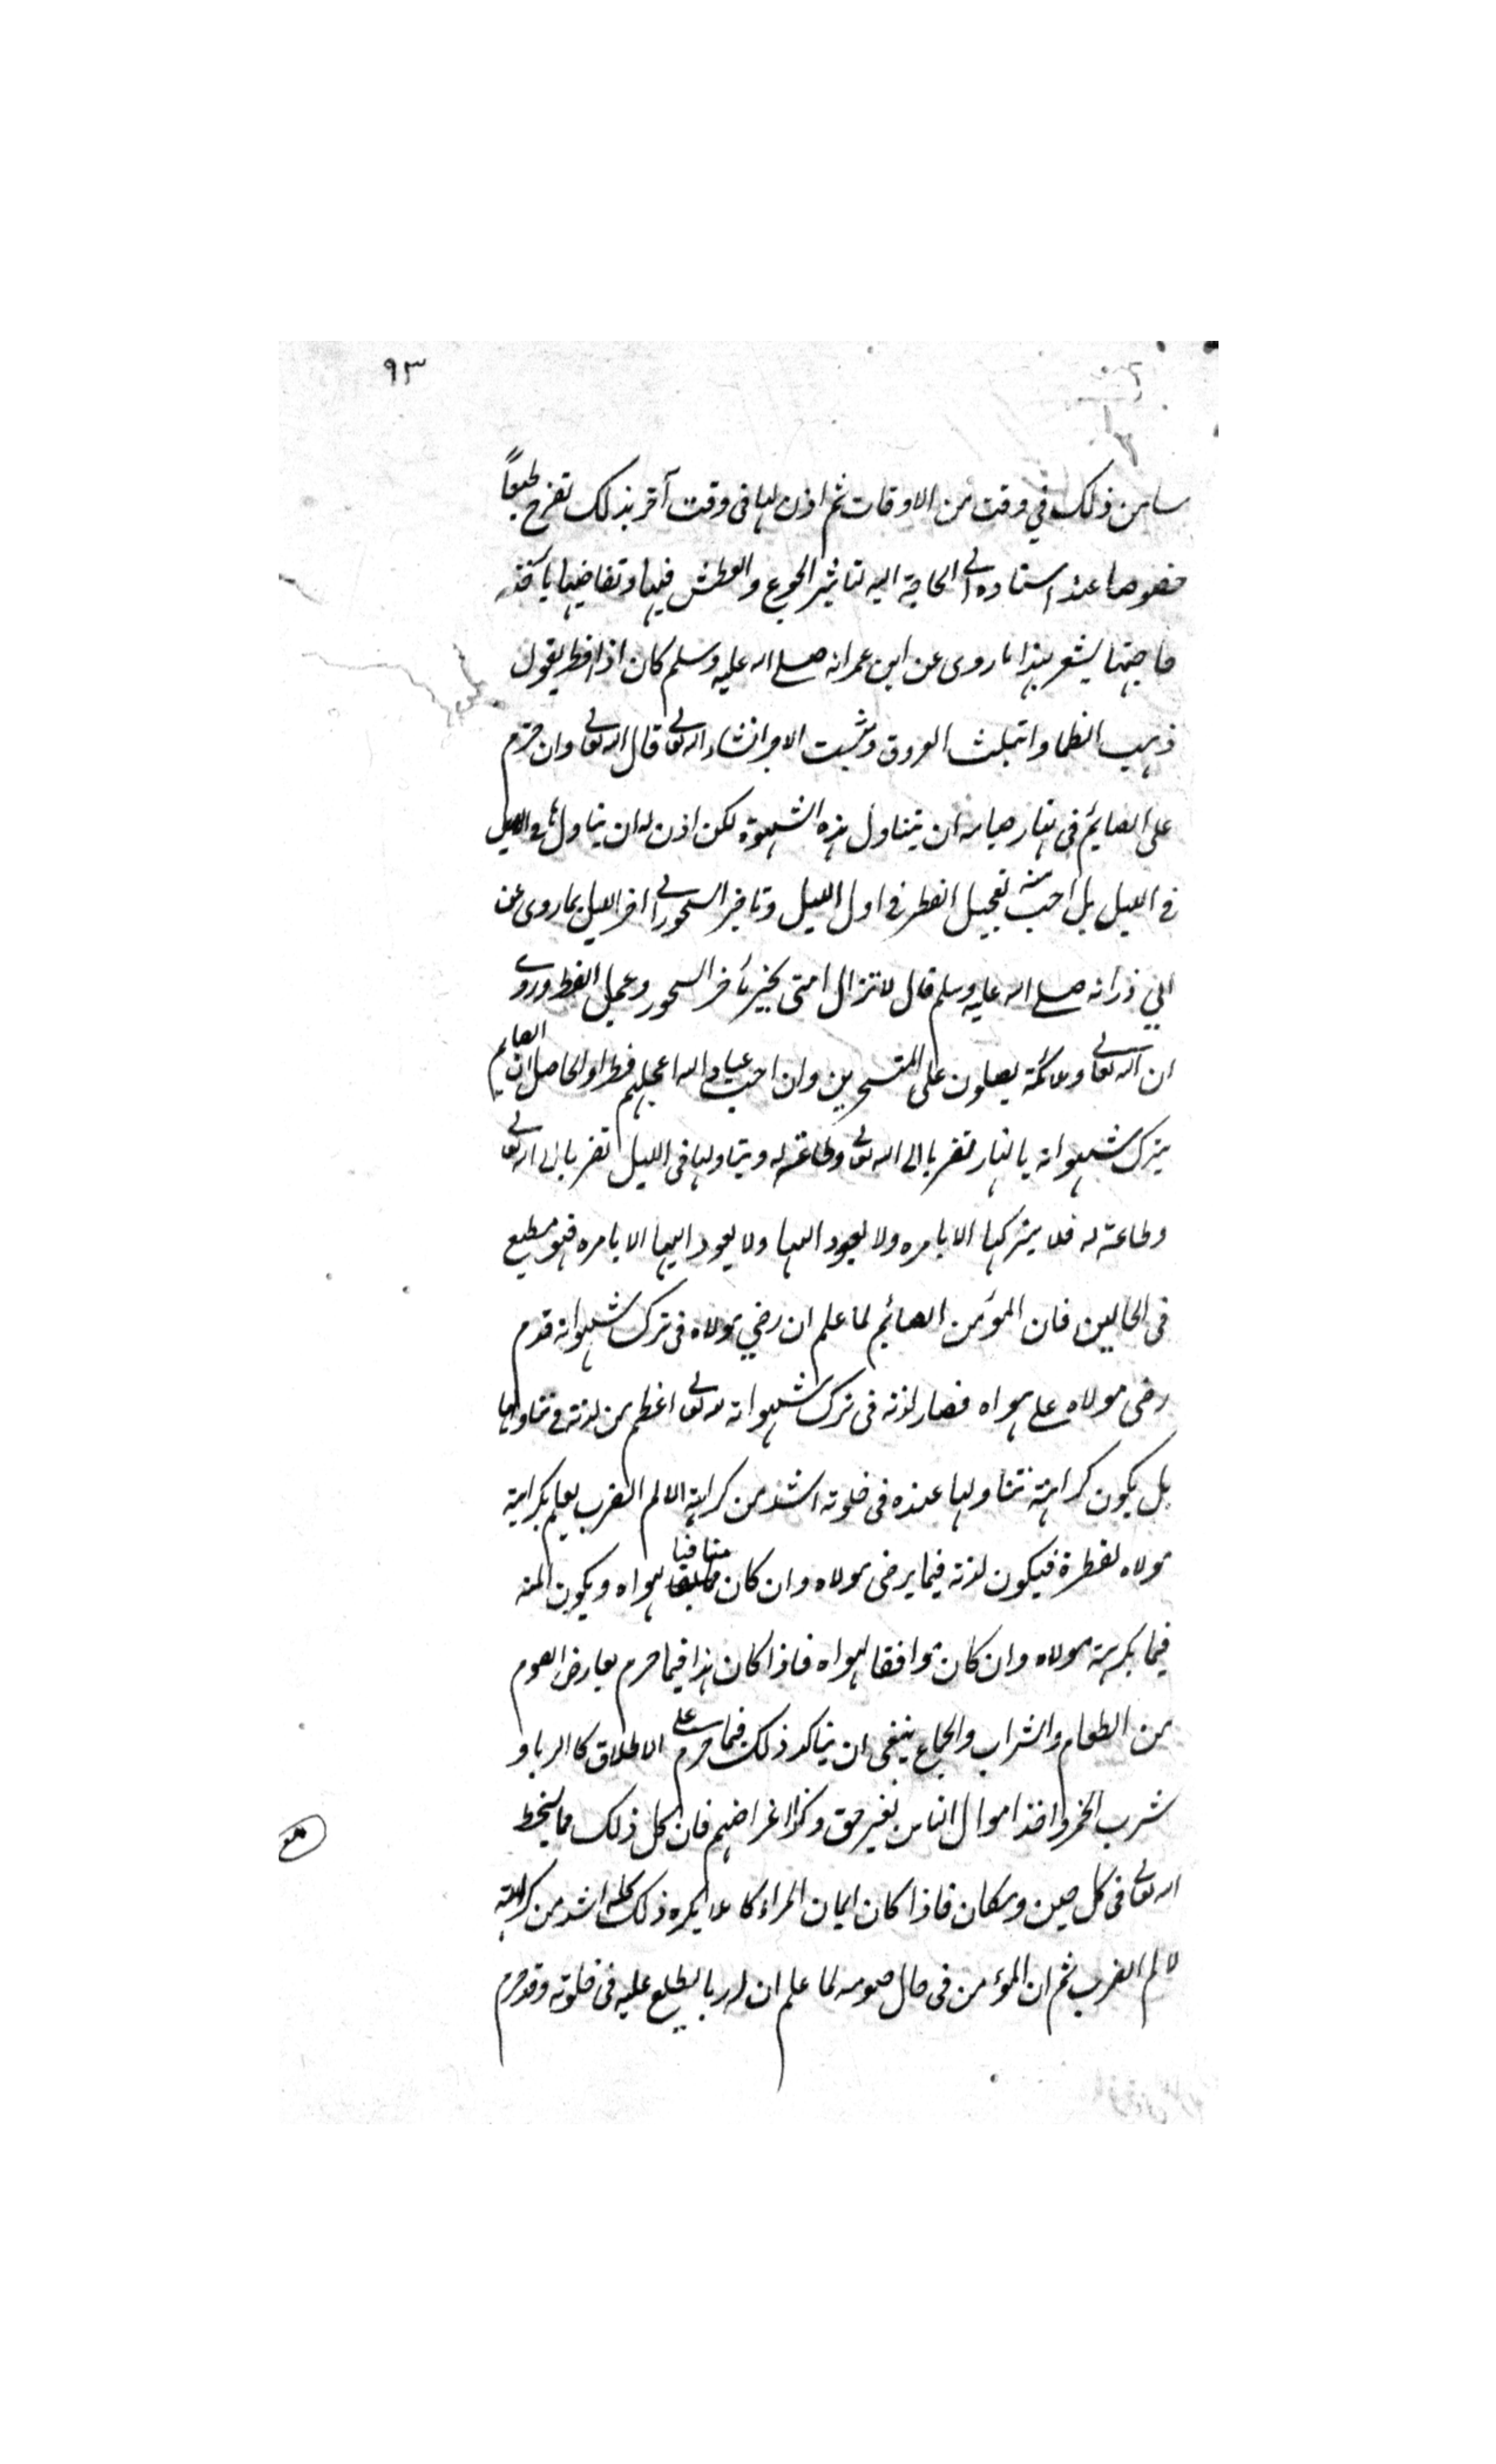 ٩٣
سا من ذلك في وقت من الاوقات ثم اذن لها فى وقت آخر بذلك تفرح طبعاً
خصوصا عند اشتداد الى الحاجة اليه لتاثير الجوع والعطش فيها وتقاضيها
حاجتها يشعر بهذا ما روى عن ابن عمر انه صلى الله عليه وسلم كان اذا افطر يقول
ذهب الظما وابتلت العروق وثبت الاجر انشاء الله تعالى قال الله تعالى وان حرم
على الصايم فى نهار صيامه ان يتناول هذه الشهوة لكن اذن له ان يتناولها فى الليل
فى الليل بل احب منه تعجيل الفطر فى اول الليل وتاخير السحور الى اخر الليل بما روى عن
ابي ذر انه صلى الله عليه وسلم قال لا تزال امتى بخير ما اخر السحور وعجل الفطر وروى
ان الله تعالى وملائكته يصلون على المتسحرين وان احب عباد الله اعجلهم فطرا والحاصل ان الصايم
يترك شهواته بالنهار تقربا الى الله تعالى وطاعة له ويتناولها فى الليل تقربا الى الله تعالى
وطاعة له فلا يتركها الا بامره ولا يعود اليها ولا يعود اليها الا بامره فهو مطيع
فى الحالين فان المؤمن الصائم لما علم ان رضي مولاه فى ترك شهواته قدم
رضى مولاه على هواه فصار لذته فى ترك شهواته لله تعالى اعظم من لذته فى تناولها
بل يكون كراهته تناولها عنده فى خلوته اشد من كراهته الالم الضرب لعلمه بكراهية
مولاه لفطره فيكون لذته فيما يرضى مولاه وان كان منافيا لهواه ويكون المه
فيما يكرهه مولاه وان كان موافقا لهواه فاذا كان هذا فيما حرم لعارض الصوم
من الطعام والشراب والجماع ينبغى ان يتاكد ذلك فيما حرم على الاطلاق كالربا و
شرب الخمر واخذ اموال الناس بغير حق وكذا اغراضهم فان كل ذلك مما يسخط
الله تعالى فى كل حين ومكان فاذا كان ايمان المراء كاملا يكره ذلك كله اشد من كراهته
لالم الضرب ثم ان المؤمن فى حال صومه لما علم ان له ربا يطلع عليه فى خلوته وقد حرم